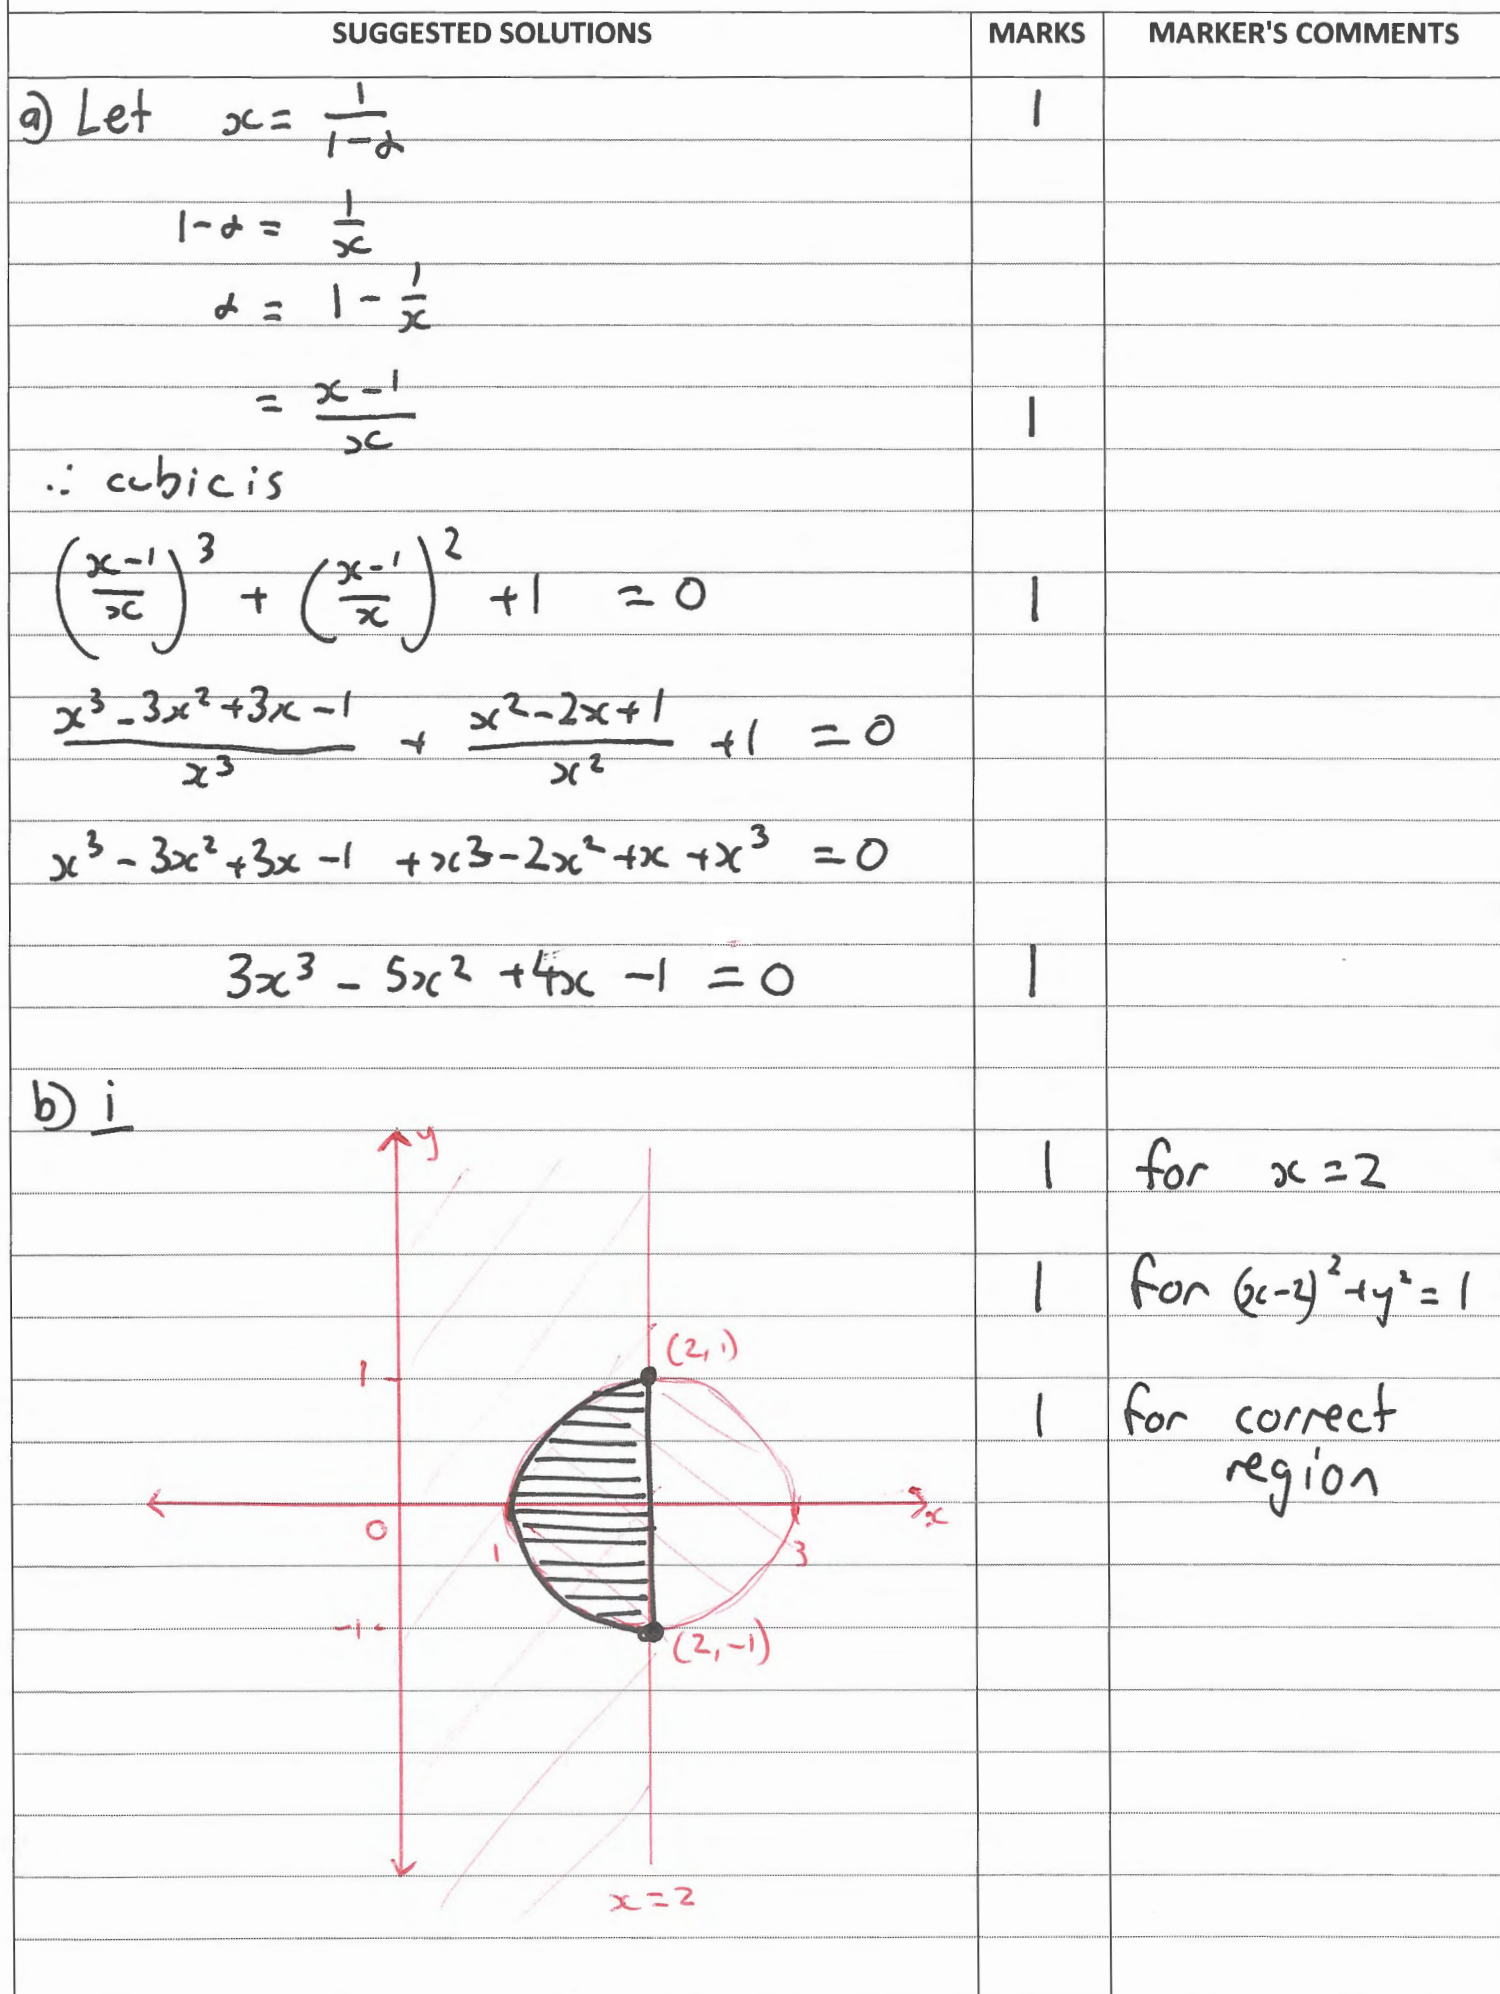 SUGGESTED SOLUTIONS MARKS MARKER'S COMMENTS
a) Let x = 1/(1-α) 1
1-α = 1/x
α = 1 - 1/x
= (x-1)/x 1
∴ cubic is
((x-1)/x)³ + ((x-1)/x)² + 1 = 0 1
(x³-3x²+3x-1)/x³ + (x²-2x+1)/x² + 1 = 0
x³ - 3x² + 3x - 1 + x³ - 2x² + x + x³ = 0
3x³ - 5x² + 4x - 1 = 0 1
b) i
y
1 for x = 2
1 for (x-2)² + y² = 1
(2, 1)
1
1 for correct
region
0 x
1 3
-1
(2, -1)
x = 2